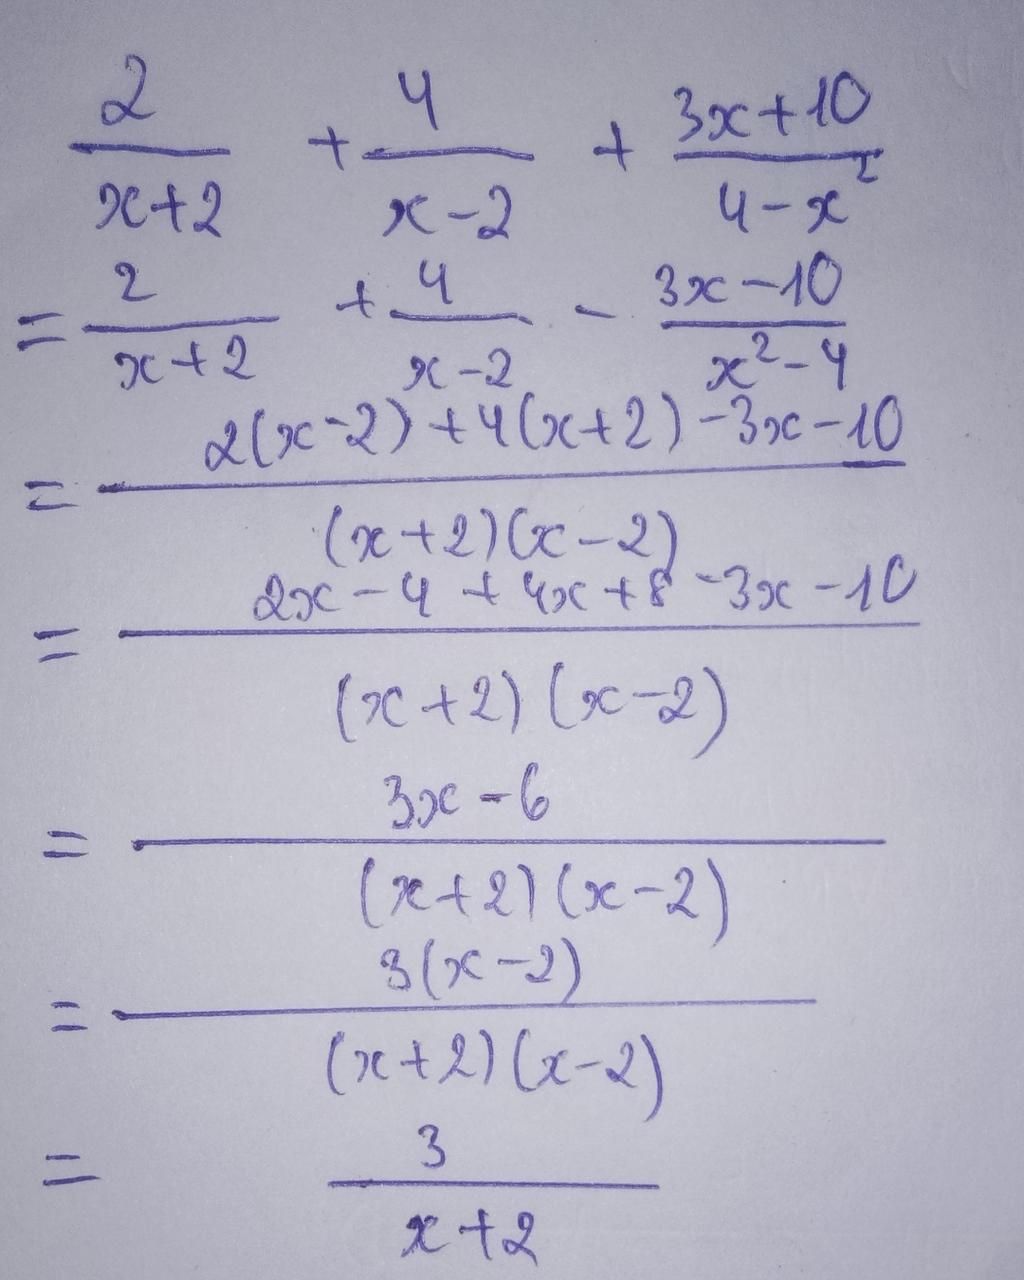 2/(x+2) + 4/(x-2) + (3x+10)/(4-x²)
= 2/(x+2) + 4/(x-2) - (3x-10)/(x²-4)
= (2(x-2)+4(x+2)-3x-10)/((x+2)(x-2))
= (2x-4+4x+8-3x-10)/((x+2)(x-2))
= (3x-6)/((x+2)(x-2))
= (3(x-2))/((x+2)(x-2))
= 3/(x+2)